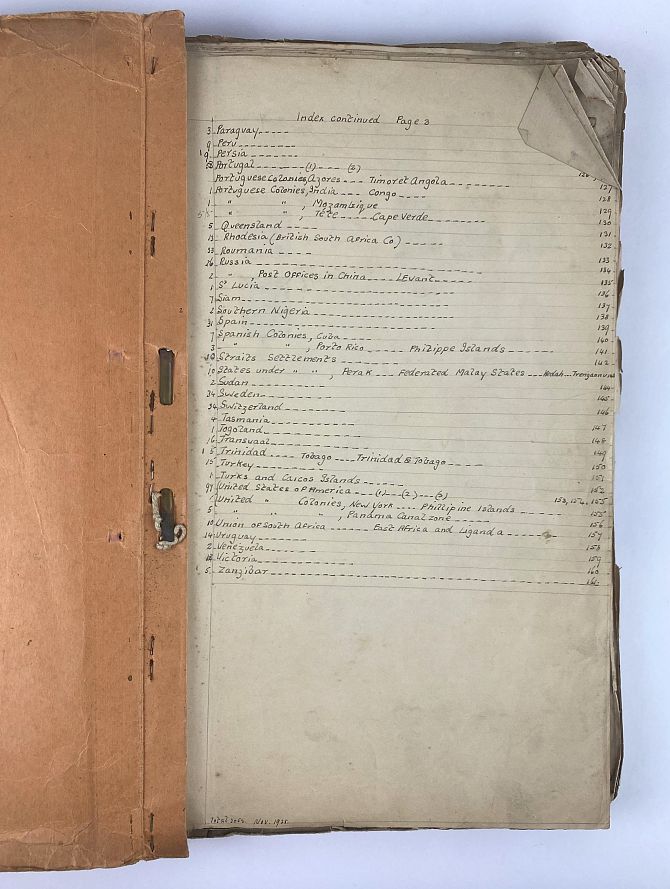 Index continued Page 3
3 Paraguay
9 Peru
9 Persia
Portugal (1) (2)
Portuguese Colonies, Azores Timor et Angola 127
1 Portuguese Colonies, India Congo 128
1 " " , Mozambique 129
" " , Tete Cape Verde 130
5 Queensland 131
Rhodesia (British South Africa Co) 132
13 Roumania 133
26 Russia 134
2 " , Post Offices in China Levant 135
1 St Lucia 136
7 Siam 137
2 Southern Nigeria 138
31 Spain 139
7 Spanish Colonies, Cuba 140
3 " " , Porto Rico Philippe Islands 141
10 Straits Settlements 142
10 States under " " , Perak Federated Malay States Kedah Trengannu
2 Sudan 144
34 Sweden 145
34 Switzerland 146
4 Tasmania 147
1 Togoland 148
16 Transvaal 149
5 Trinidad Tobago Trinidad & Tobago 150
15 Turkey 151
1 Turks and Caicos Islands 152
97 United States of America (1) (2) (3) 153, 154, 155
United " Colonies, New York Philipine Islands 155
5 " " " , Panama Canal zone 156
10 Union of South Africa East Africa and Uganda 157
14 Uruguay 158
2 Venezuela 159
12 Victoria 160
5 Zanzibar 161
Total Nov. 1925